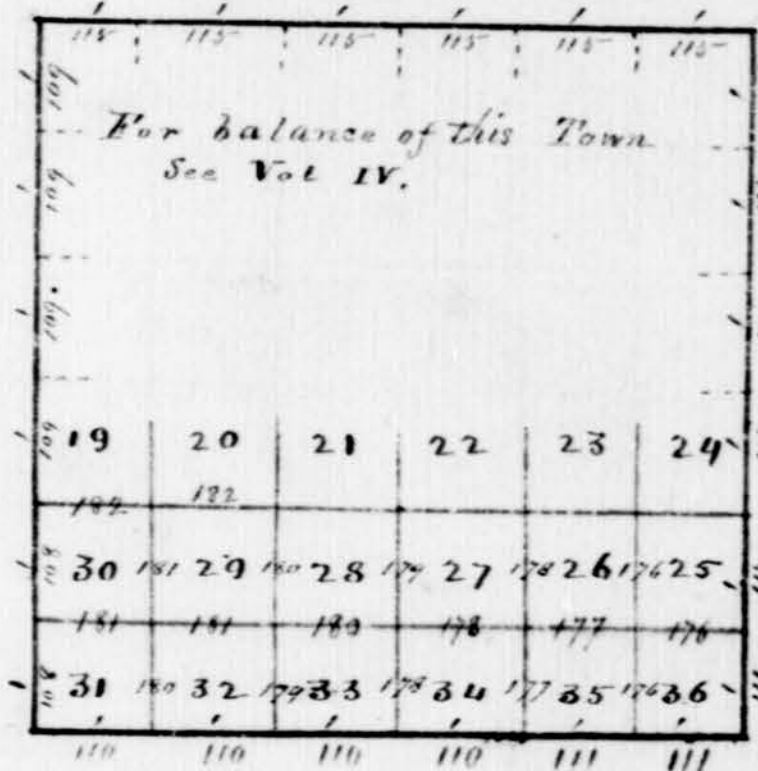 115 115 115 115 115 115
109
For balance of this Town
See Vol IV.
109
109.
109 19 20 21 22 23 24
182 182
108 30 181 29 180 28 179 27 178 26 176 25
181 181 180 178 177 176
108 31 180 32 179 33 178 34 177 35 176 36
110 110 110 110 111 111